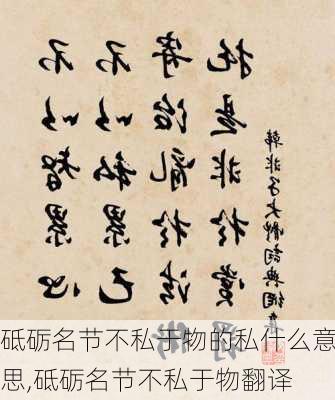 不以智累
不以私累己
寄治亂於法
托是非於賞
韓非子大體
砥砺名节不私于物的私什么意
思,砥砺名节不私于物翻译